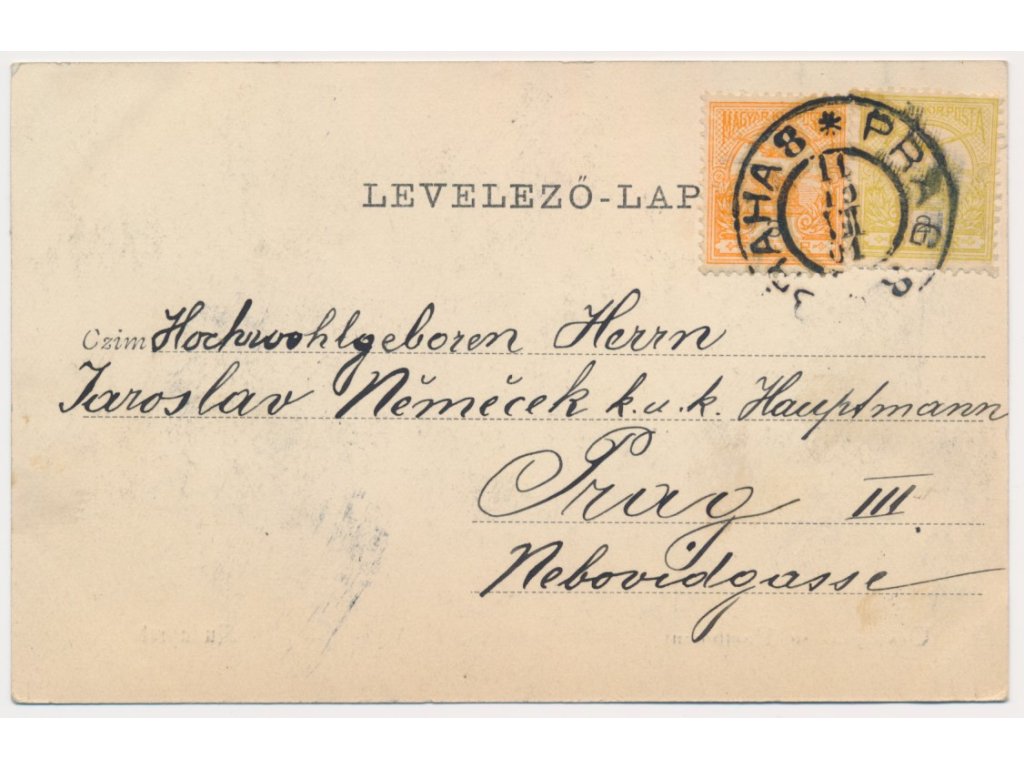 LEVELEZŐ-LAP
MAGYAR
PRAHA 8 * PRAG 8
Czim Hochwohlgeboren Herrn
Jaroslav Němeček k. u. k. Hauptmann
Prag III
Nebovidgasse